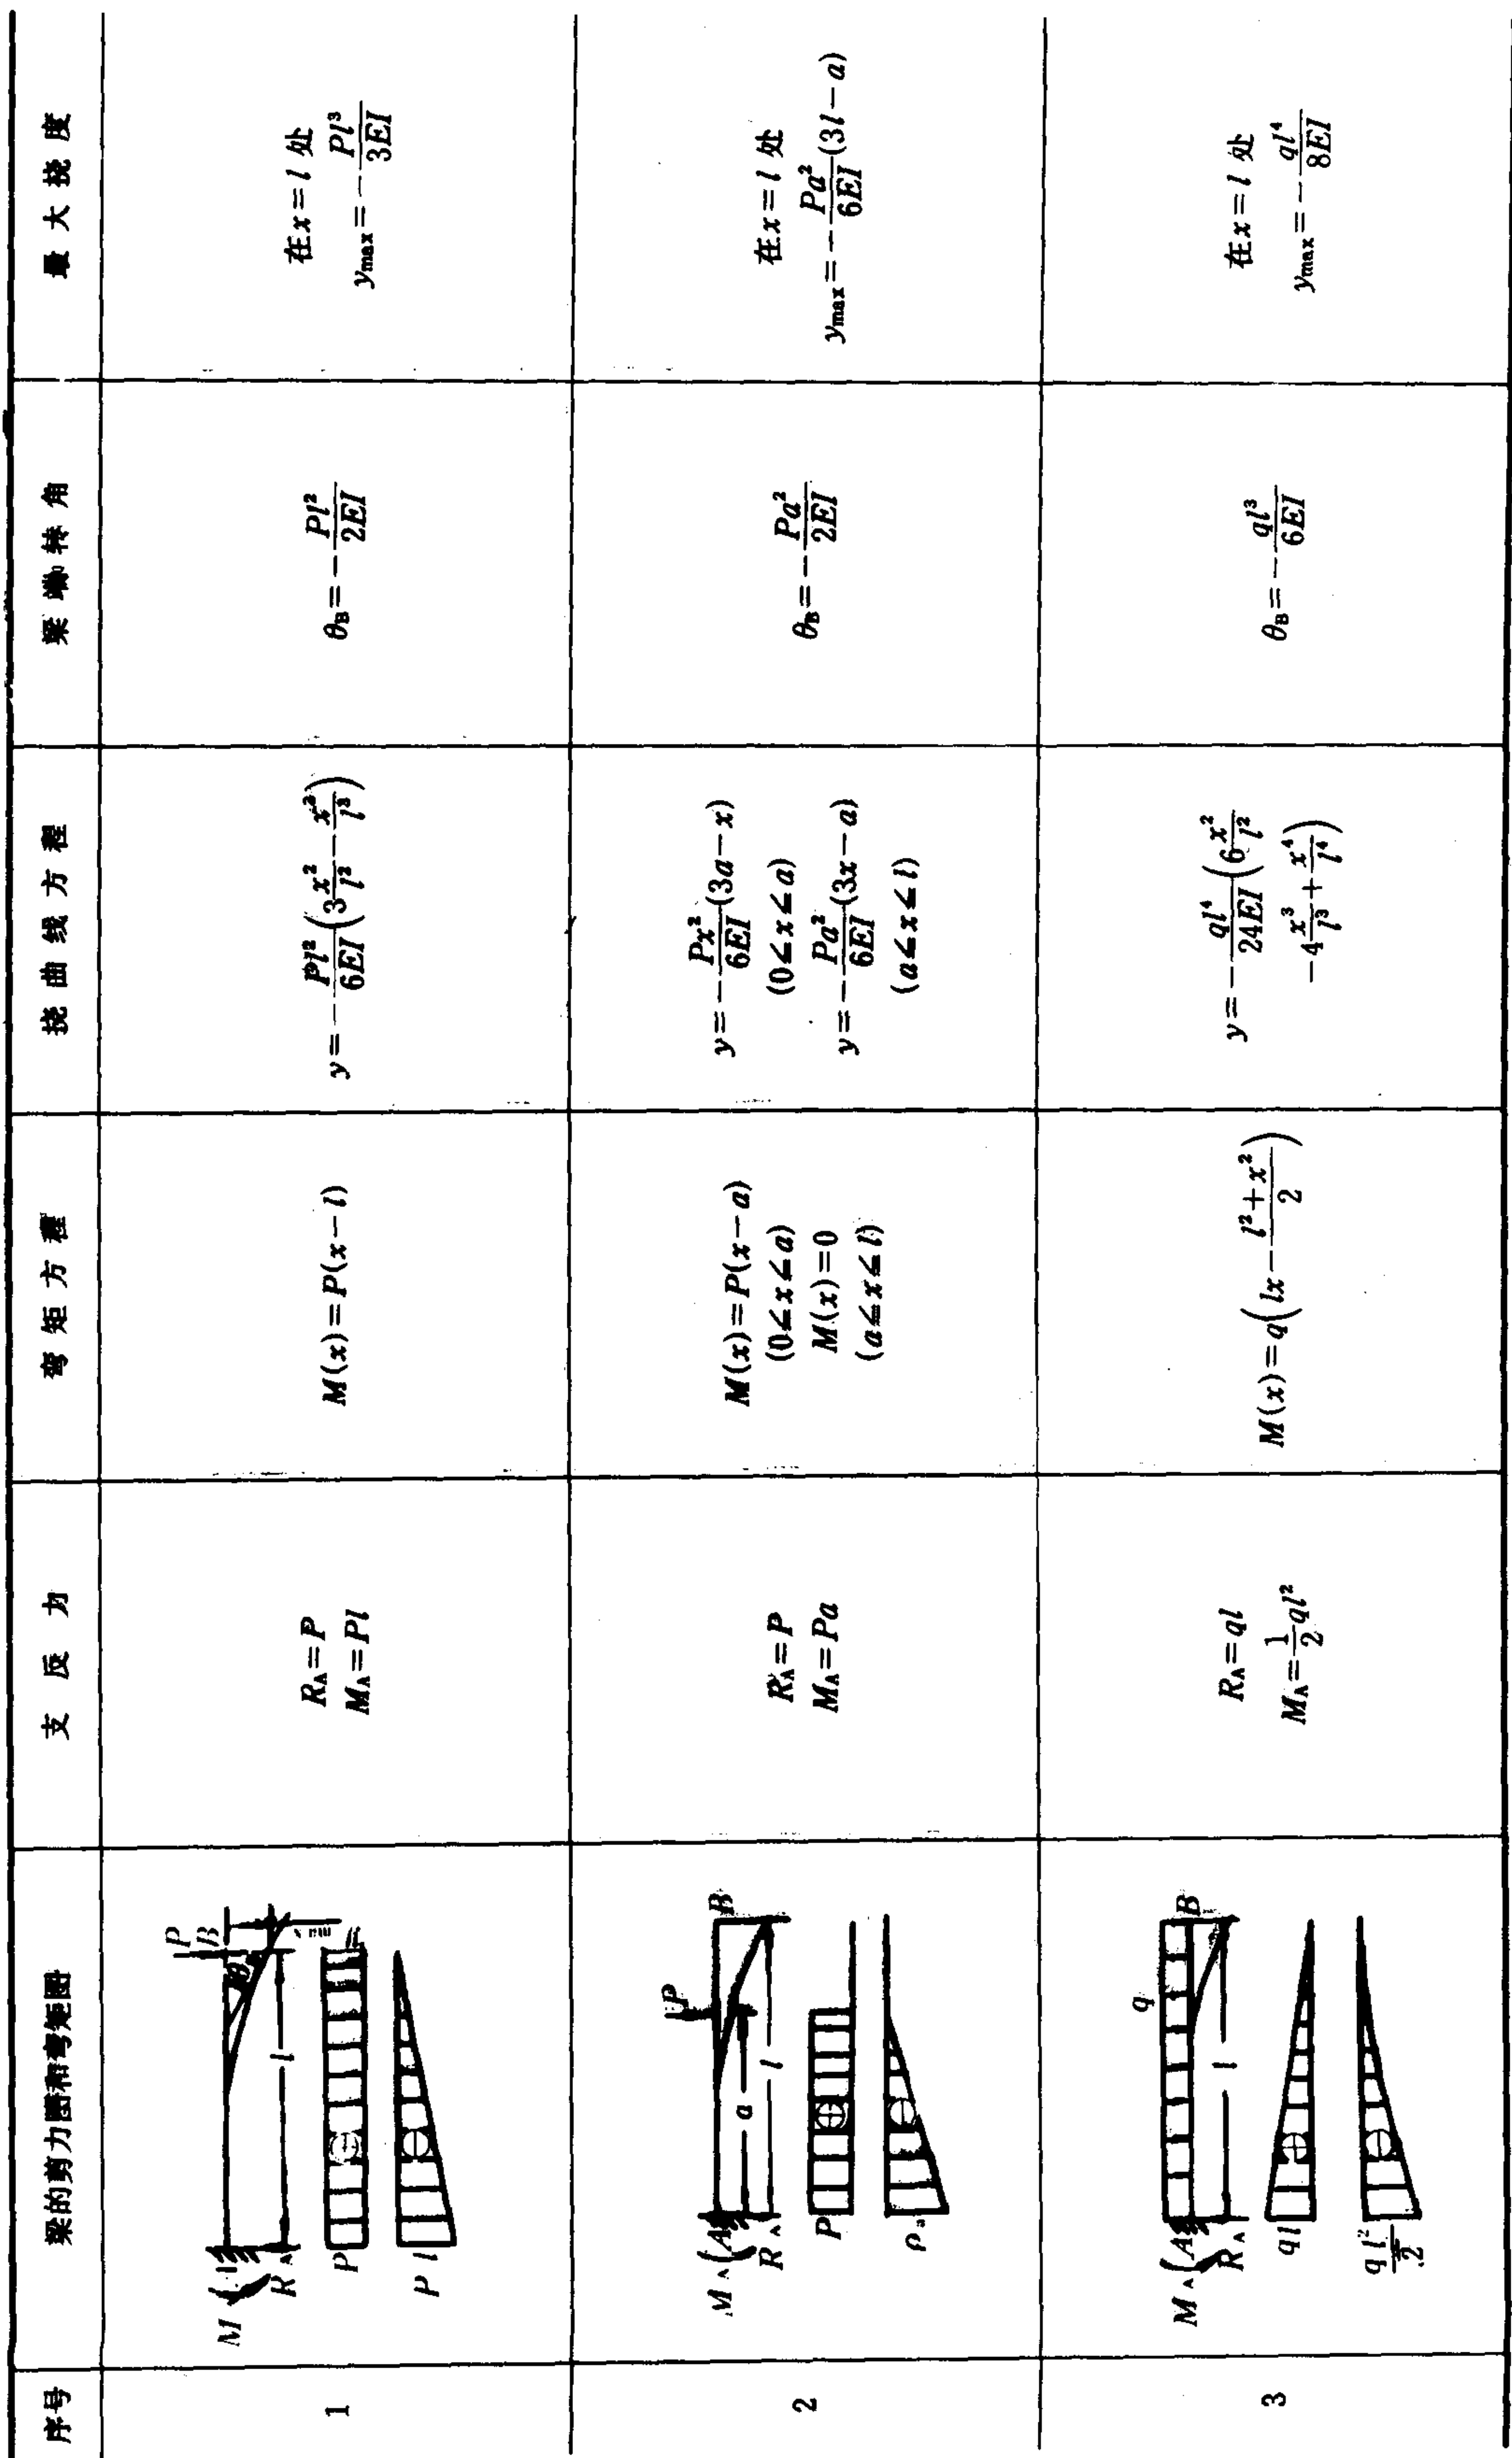 序号 梁的剪力图和弯矩图 支反力 弯矩方程 挠曲线方程 梁端转角 最大挠度
1
M
R_A
P
B
θ
l
P
P l
R_A=P
M_A=Pl
M(x)=P(x-l)
y=-\frac{Pl^2}{6EI}(3\frac{x^2}{l^2}-\frac{x^3}{l^3})
θ_B=-\frac{Pl^2}{2EI}
在x=l处
y_max=-\frac{Pl^3}{3EI}
2
M_A
A
R_A
P
B
a
l
P
Pa
R_A=P
M_A=Pa
M(x)=P(x-a)
(0≤x≤a)
M(x)=0
(a≤x≤l)
y=-\frac{Px^2}{6EI}(3a-x)
(0≤x≤a)
y=-\frac{Pa^2}{6EI}(3x-a)
(a≤x≤l)
θ_B=-\frac{Pa^2}{2EI}
在x=l处
y_max=-\frac{Pa^2}{6EI}(3l-a)
3
M_A
A
R_A
q
B
l
ql
\frac{ql^2}{2}
R_A=ql
M_A=\frac{1}{2}ql^2
M(x)=q(lx-\frac{l^2+x^2}{2})
y=-\frac{ql^4}{24EI}(6\frac{x^2}{l^2}
-4\frac{x^3}{l^3}+\frac{x^4}{l^4})
θ_B=-\frac{ql^3}{6EI}
在x=l处
y_max=-\frac{ql^4}{8EI}